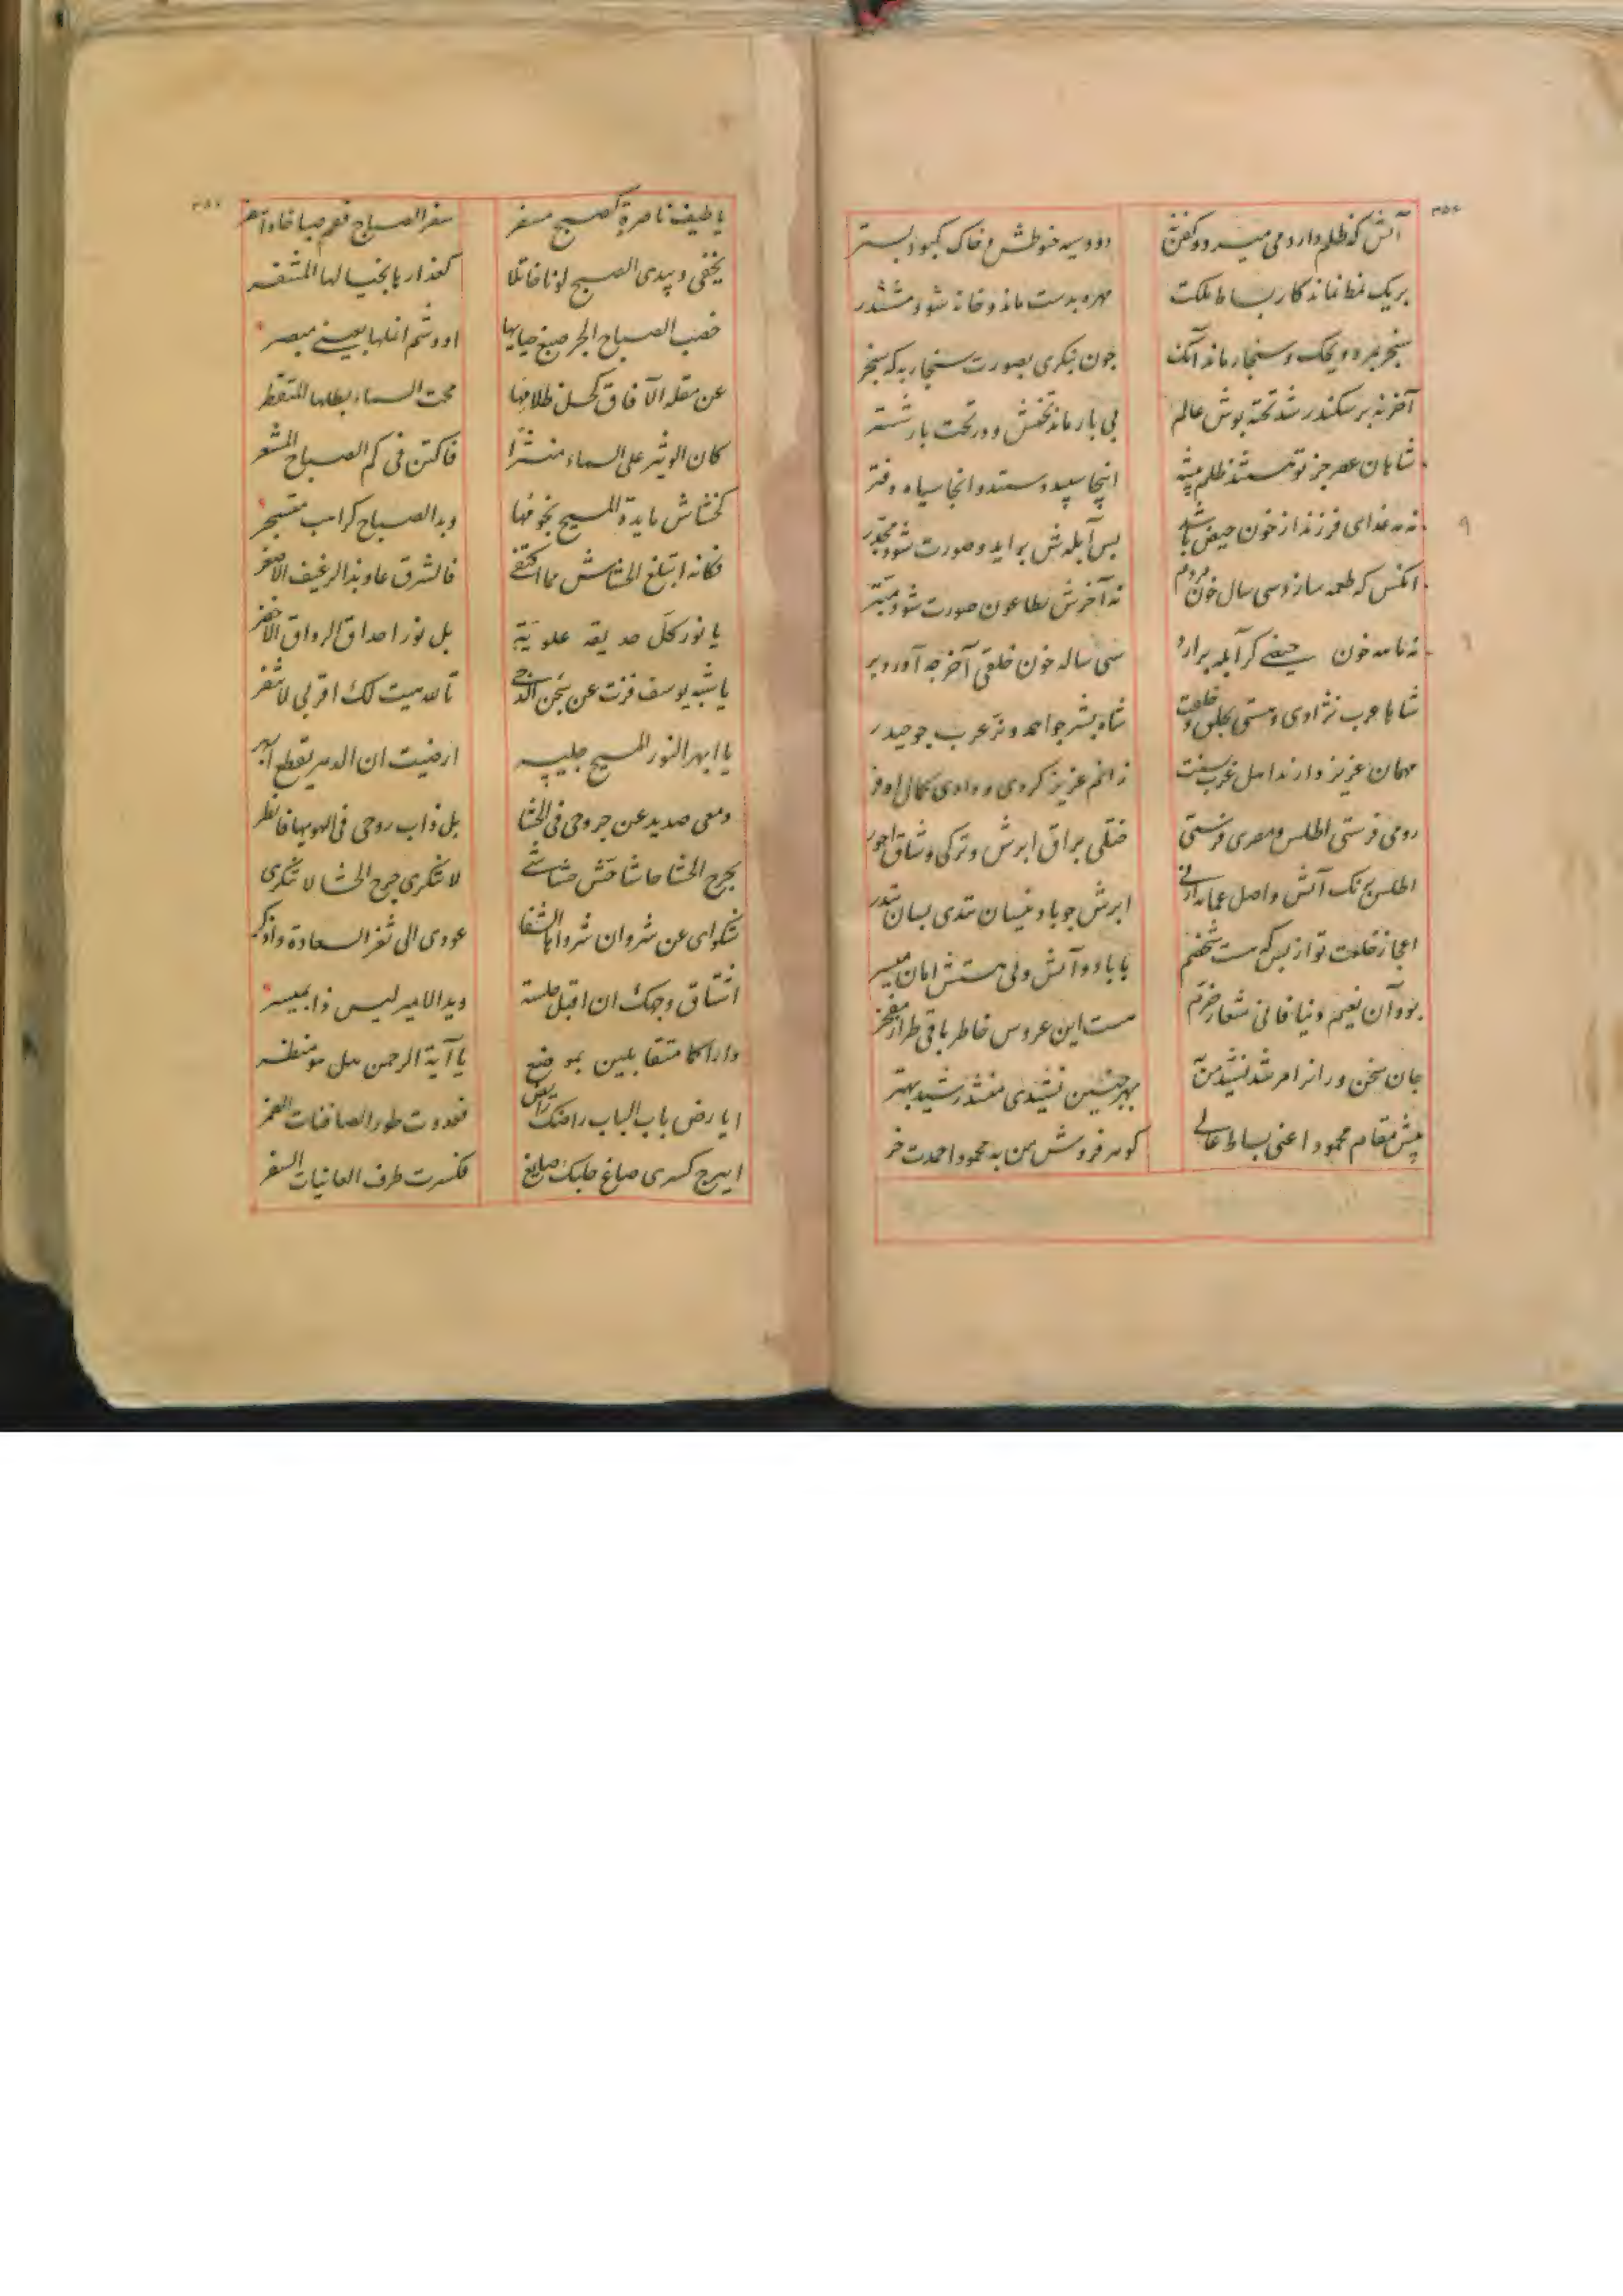 ۳۵۶
آتش که ظلم دارد می میرد و کفن نه دود سیه حنوطش و خاک کبود بستر
بر یک نمط نماند کار بساط ملکت مهره بدست ماند و خانه شود مششدر
سنجر بمرد و یحک و سنجار ماند آنک چون بنگری بصورت سنجار به که سنجر
آخر نه بر سکندر شد تخته پوش عالم بی بار ماند تختش و در تخت بار شستر
شاهان عصر جز تو هستند ظلم پیشه اینجا سپید دستند و انجا سیاه دفتر
نه مه غدای فرزند از خون حیض باشد بس آبله ش براید و صورت شود مجدر
انکس که طعمه سازد سی سال خون مردم نه آخرش بطاعون صورت شود مبتر
نه ماهه خون حیضی کر آبله برارد سی ساله خون خلقی آخر چه آورد بر
شاها عرب نژادی و هستی بخلق و خلقت شاه بشر چو احمد و نر عرب چو حیدر
مهمان عزیز دارند اهل عرب بسنت زانم عزیز کردی و دادی کمال اوفر
رومی فرستی اطلس و مصری فرستی ختلی براق ابرش و ترکی وشاق احور
اطلس برنک آتش و اصل عمامه از نی ابرش چو باد نیسان تندی بسان تندر
اعجاز خلعت تو از بس که هست شخصم با باد و آتش و نی هستش امان میسر
بود آن نعیم دنیا فانی شعار خرم هست این عروس خاطر باقی طراز مفخر
جان سخن وران را مرشد نشید من بهر چنین نشیدی منشد رشید بهتر
پیش مقام محمود اعنی بساط عالی کوهر فروش من به محمود احمدت خر
۳۵۷
یا طیف ناصرة کصبح مسفر سفر الصباح فقم صباحا و اسفر
یخفی و یبدی الصبح لونا خاتلا کعذار بالخیالها المتنقر
خضب الصباح الجر صبغ حیابها او وشم انملها بعینی مبصر
عن مقله الآفاق کحل ظلامها محت السماء بطلها المتقطر
کان الوشر علی السماء منشرا فاکتن فی کم الصباح المشعر
کخشاش مایدة المسیح بخوفها و بدا الصباح کراهب متسحر
فکانه ابتلع الخشاش مما اکتفی فالشرق عاو بذا الرغیف الاصغر
یا نور کل حدیقه علویة بل نور احداق الرواق الاخضر
یا شبه یوسف فزت عن سجن الدجی تالله میت لک اقربی لا تنفر
یا ابهر النور المسیح جلیبه ارضیت ان الدهر یقطع ابهر
و معی صدید عن جروحی فی الحشا بل ذاب روحی فی الهویها فانظر
بجرح الحشا حاشا حش حشاشتی لا تنکری جرح الحشا لا تنکری
شکوای عن شروان شروان الشفا عودی الی ثغر السعادة واذکر
اشتاق وجهک ان اقبل جلسة و یدالامیر لیس ذا بمیسر
و اراکما متقابلین بموضع یا آیة الرحمن هل هو منظر
ایا رض باب الباب راضک رائض فعدوت طور الصافنات الضمر
ایبرج کسری صاغ حلیک صایغ فکسرت طرف الغانیات السفر